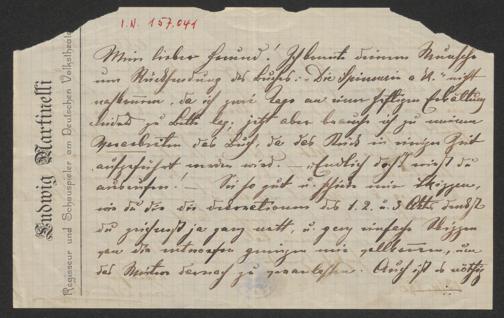 I.N. 157.041
Ludwig Martinelli
Regisseur und Schauspieler am Deutschen Volkstheater
Mein lieber Freund! Ich konnte deinem Wunsche
um Rücksendung des Buches: „Die Spinnerin a. K." nicht
nachkommen, da ich zwei Tage an einer heftigen Erkältung
leidend zu Bette lag; jetzt aber brauche ich zu meinen
Vorarbeiten das Buch, da das Stück in einiger Zeit
aufgeführt werden wird. — „Endlich" darfst du
ausrufen! — Sei so gut u. schicke mir Skizzen,
wie du dir die Decorationen des 1. 2. u. 3 Aktes denkst
du zeichnest ja ganz nett, u. ganz einfache Skizzen
von dir entworfen genügen mir vollkommen, um
das Weitere darnach zu veranlassen. Auch ist es nöthig